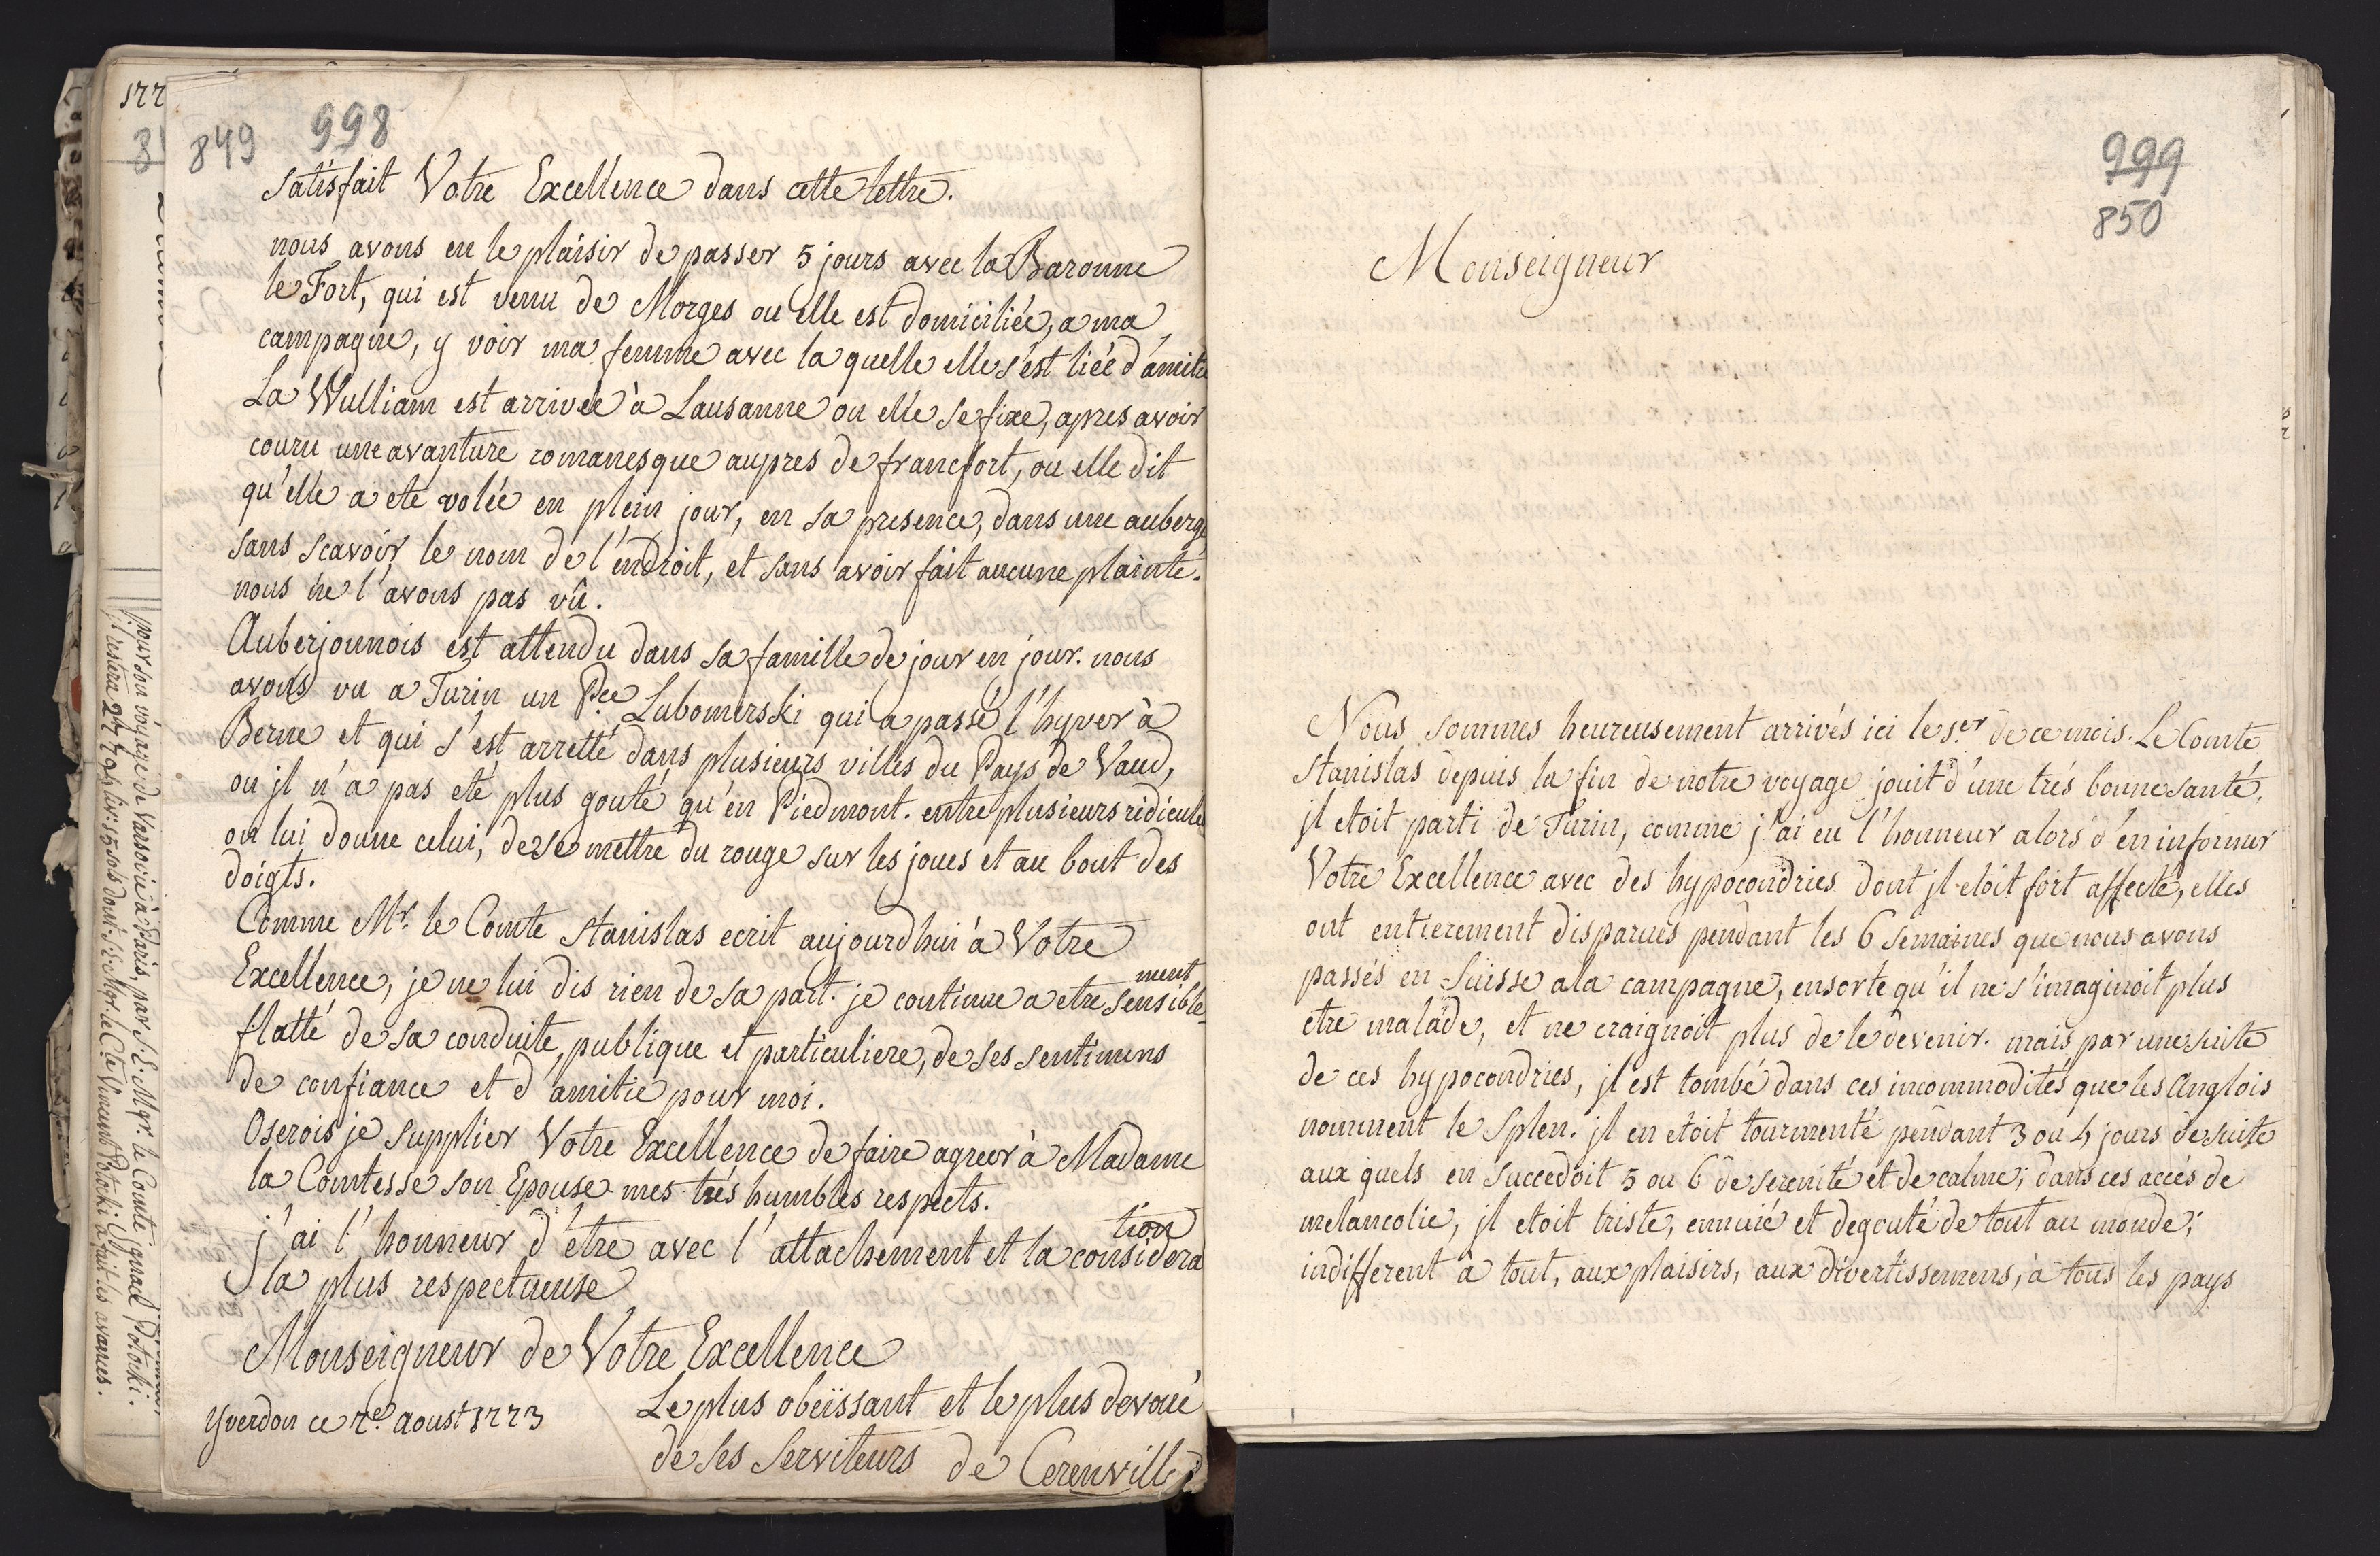 177
8
849 998
satisfait Votre Excellence dans cette lettre.
nous avons eu le plaisir de passer 5 jours avec la Baronne
le Fort, qui est venu de Morges ou elle est domiciliée, a ma
campagne, y voir ma femme avec la quelle elle s'est liée d'amitie
La Wulliam est arrivée à Lausanne ou elle se fixe, apres avoir
couru une avanture romanesque aupres de francfort, ou elle dit
qu'elle a ete volée en plein jour, en sa presence, dans une auberge
sans scavoir le nom de l'endroit, et sans avoir fait aucune plainte.
nous ne l'avons pas vû.
Auberjounois est attendu dans sa famille de jour en jour. nous
avons vu a Turin un Pce Lubomirski qui a passé l'hyver à
Berne et qui s'est arretté dans plusieurs villes du Pays de Vaud,
ou jl n'a pas eté plus gouté qu'en Piedmont. entre plusieurs ridicules
on lui donne celui, de se mettre du rouge sur les joues et au bout des
doigts.
Comme Mr. le Comte Stanislas ecrit aujourdhui à Votre
Excellence, je ne lui dis rien de sa part. je continue a etre sensible-
ment
flatté de sa conduite, publique et particuliere, de ses sentimens
de confiance et d'amitie pour moi.
Oserois je supplier Votre Excellence de faire agreer à Madame
la Comtesse son Epouse mes trés humbles respects.
j'ai l'honneur d'étre avec l'attachement et la considera
tion
la plus respectueuse
Monseigneur de Votre Excellence
Le plus obeïssant et le plus devoué
Yverdon ce 7e. aoust 1773
de ses Serviteurs de Cerenville
pour son voyage de Varsovie à Paris, par S. E. Mgr. le Comte Ignace Potocki.
jl restera 247 liv: 15 sols dont S. E. Mgr. le Cte Vincent Potocki a fait les avances.
999
850
Monseigneur
Nous sommes heureusement arrivés ici le 1.er de ce mois. Le Comte
Stanislas depuis la fin de notre voyage jouit d'une trés bonne santé,
jl etoit parti de Turin, comme j'ai eu l'honneur alors d'en informer
Votre Excellence avec des hypocondries dont jl etoit fort affecté, elles
ont entierement disparues pendant les 6 semaines que nous avons
passés en Suisse a la campagne, ensorte qu'il ne s'imaginoit plus
etre malade, et ne craignoit plus de le devenir. mais par une suite
de ces hypocondries, jl est tombé dans ces incommodités que les Anglois
nomment le Splen. jl en etoit tourmenté pendant 3 ou 4 jours de suite
aux quels en succedoit 5 ou 6 de serenité et de calme; dans ces accés de
melancolie, jl etoit triste, ennuié et degouté de tout au monde;
indifferent à tout, aux plaisirs, aux divertissemens, à tous les pays